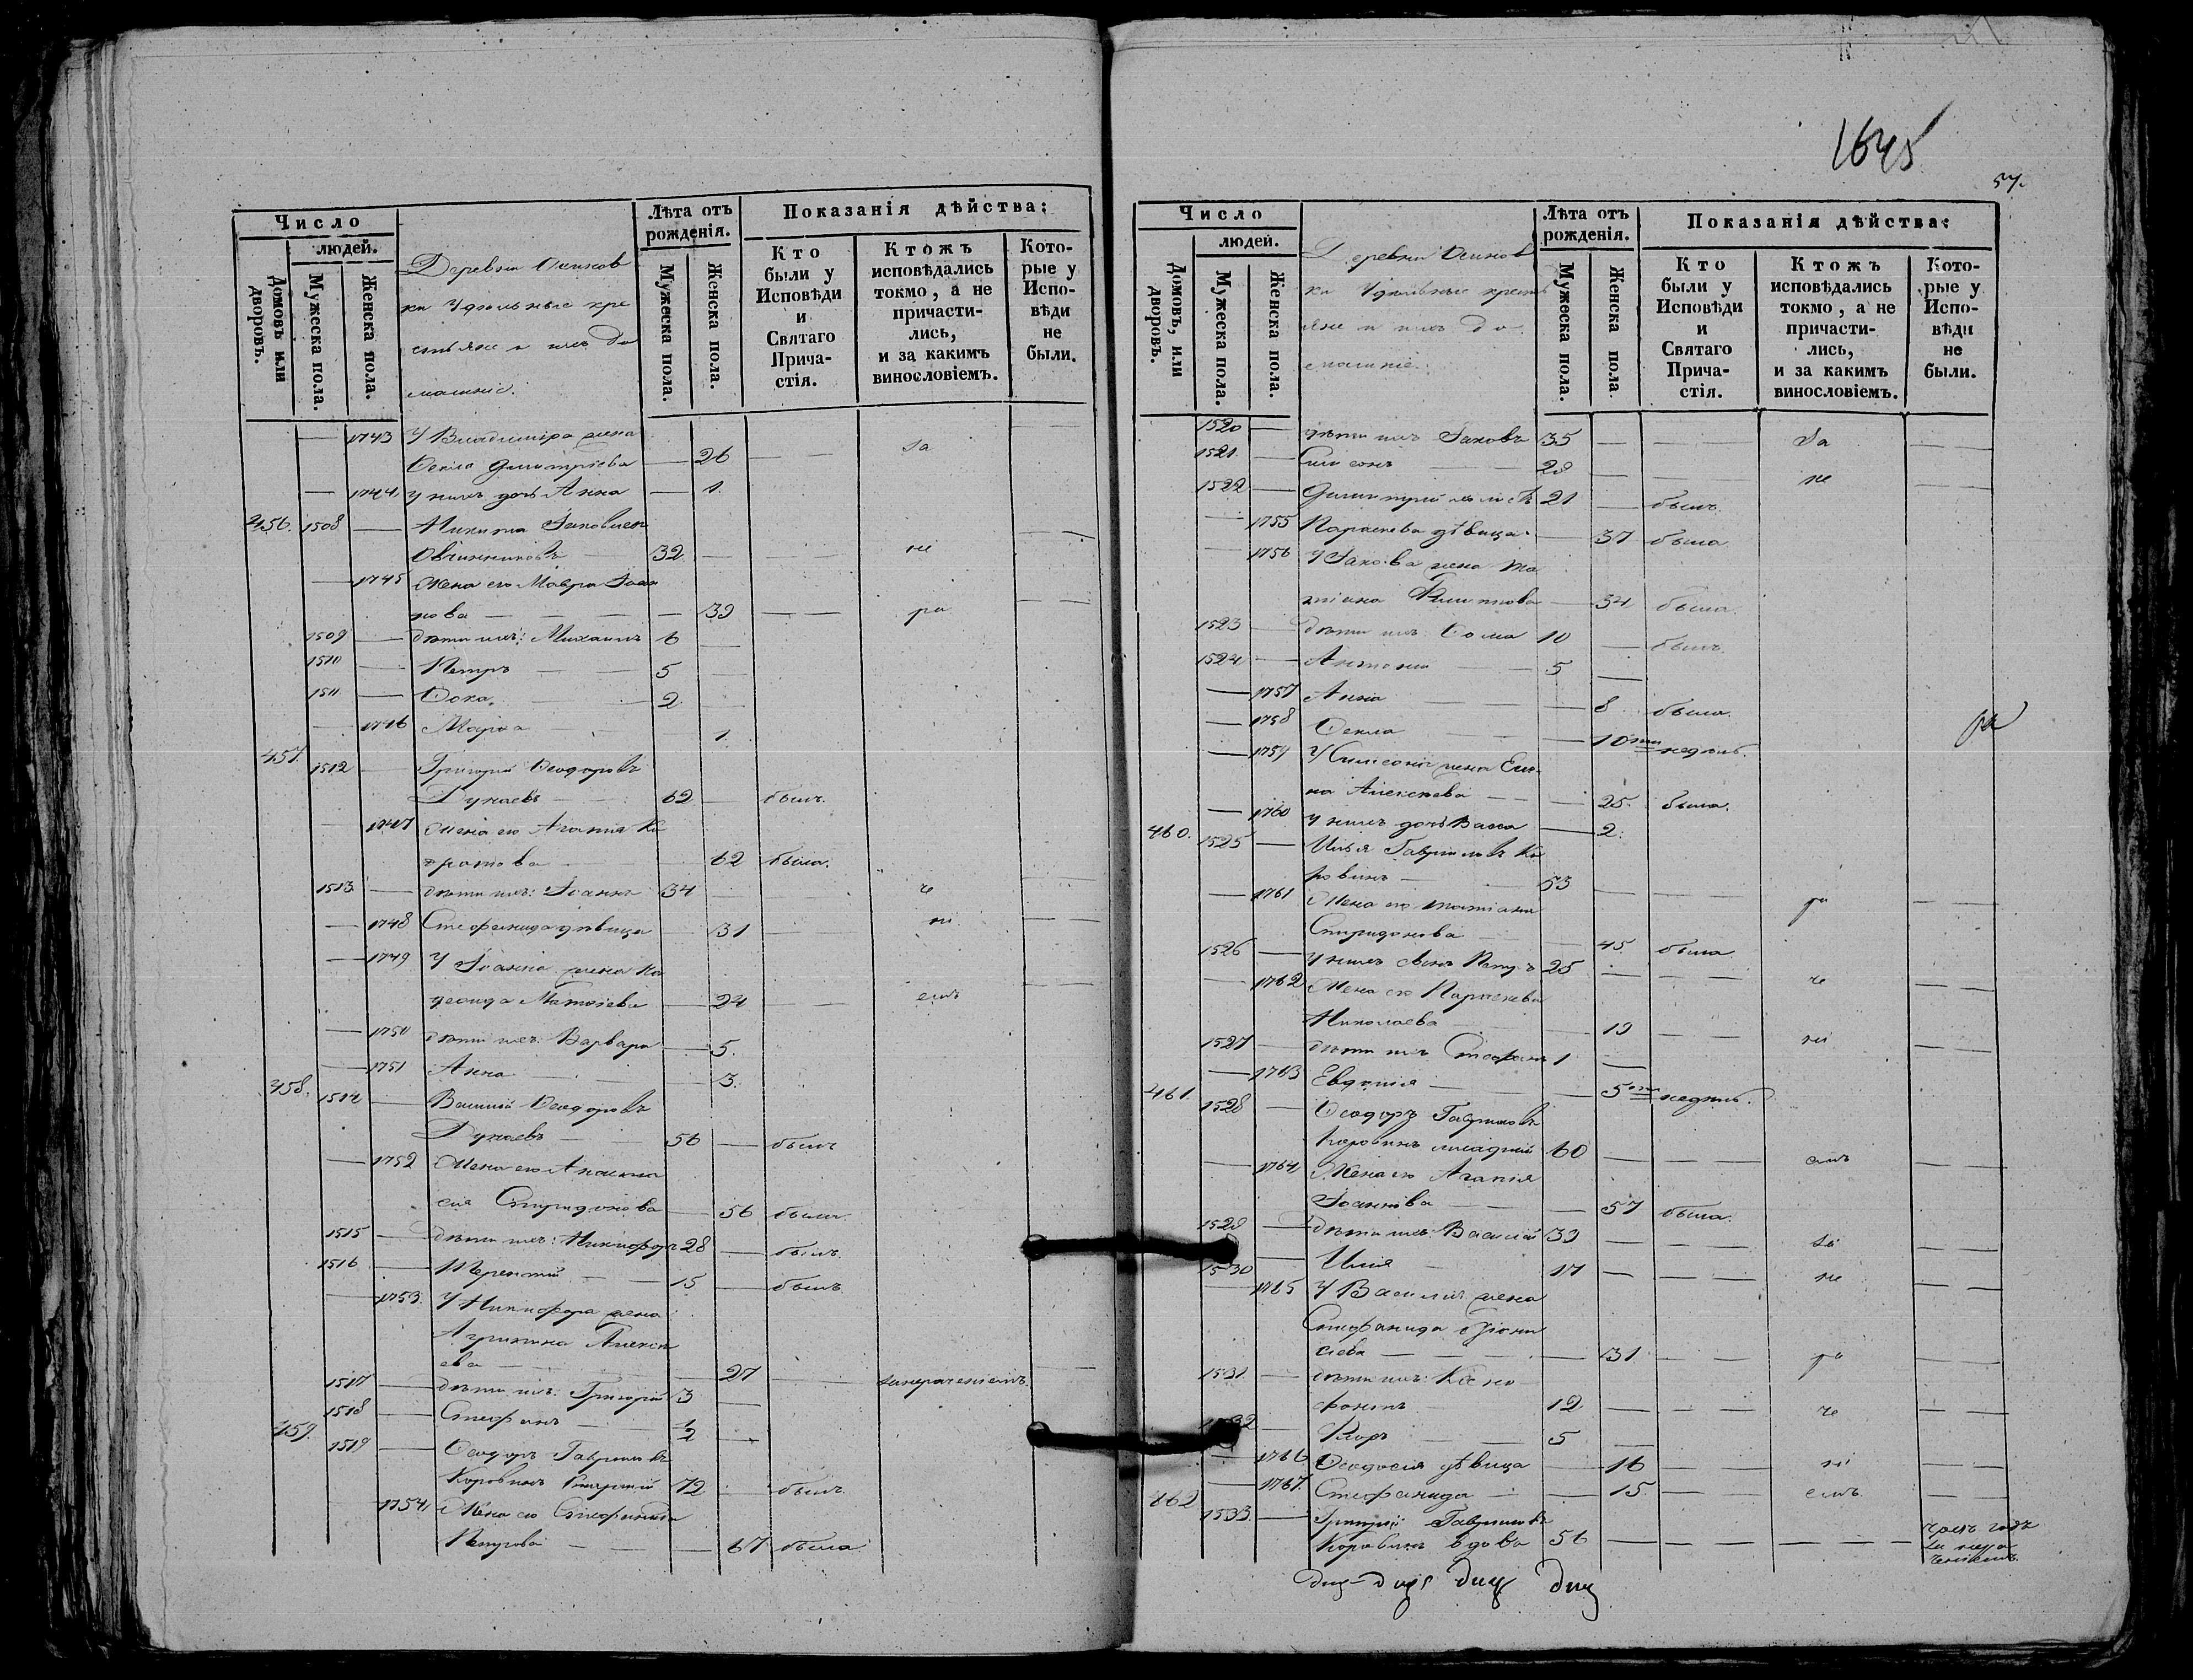 Число
людей.
Домовъ или дворовъ.
Мужеска пола.
Женска пола.
Деревни Осинов
ки Удѣльные кре
стьяне и ихъ до
машніе.
Лѣта отъ
рожденія.
Мужеска пола.
Женска пола.
Показанія дѣйства:
Кто
были у
Исповѣди
и
Святаго
Прича-
стія.
Ктожъ
исповѣдались
токмо, а не
причасти-
лись,
и за какимъ
винословіемъ.
Кото-
рые у
Испо-
вѣди
не
были.
— 1743 У Владиміра жена
Ѳекла Димитріева — 26 — — За
— 1744 у нихъ дочь Анна — 1.
456. 1508 — Никита Іаковлевъ
Овчинниковъ — 32 — — не
— 1745 Жена его Мавра Іоан
нова — — — 39 — — ра
1509 — дѣти ихъ: Михаилъ 6 —
1510 — Петръ — — 5 —
1511 — Ѳока — — 2 —
— 1746 Марѳа — — 1.
457. 1512 — Григорій Ѳеодоровъ
Дунаевъ — — 62 — былъ.
— 1747 жена его Агафія
— 62 была.
1513 — дѣти ихъ: Іоаннъ 34 — — че
— 1748 Стефанида дѣвица — 31 — — ні
— 1749 У Іоанна жена
Матѳіева — 24 — — емъ
— 1750 дѣти ихъ: Варвара — 5.
— 1751 Анна — — 3.
458. 1514 — Василій Ѳеодоровъ
Дунаевъ — — 56 — былъ
— 1752 Жена его Анаста
сія Спиридонова — 56 была.
1515 — дѣти ихъ: Никифоръ 28 — былъ.
1516 — Терентій — — 15 — былъ
— 1753. У Никифора жена
Агрипина Алексѣ
ева — — 27 — — занерачениемъ.
1517 — дѣти ихъ: Григорій 3 —
1518 — Стефанъ — 1/2 —
459. 1519 — Ѳеодоръ Гавриловъ
Коровинъ Старшій 72 — былъ
1754 Жена его Стефанида
Петрова — — — 67 была
1645
57.
Число
людей.
Домовъ, или дворовъ.
Мужеска пола.
Женска пола.
Деревни Осинов
ки Удѣльные кресть
яне и ихъ до
машніе.
Лѣта отъ
рожденія.
Мужеска пола.
Женска пола
Показанія дѣйства:
Кто
были у
Исповѣди
и
Святаго
Прича-
стія.
Ктожъ
исповѣдались
токмо, а не
причасти-
лись,
и за какимъ
винословіемъ.
Кото-
рые у
Испо-
вѣди
не
были.
1520 — дѣти ихъ Іаковъ 35 — — — За
1521 — Симеонъ — — 28 — — — не
1522 — Димитрій 21 — былъ.
— 1755 Параскева дѣвица — 37 была
— 1756 У Іакова жена Та
тіана Филиппова — 34 была.
1523 — дѣти ихъ: Ѳома 10 — былъ.
1524 — Антоній — 5 —
— 1757 Анна — — — 8 была.
— 1758 Ѳекла — — — 10ти недѣль.
— 1759 У Симеона жена Еле
на Алексѣева — — 25. была.
— 1760 у нихъ дочь Васса — 2.
460. 1525 — Илья Гавриловъ Ко
ровинъ — — 53 — — — ра
— 1761 Жена его Татіана
Спиридонова — 45 была.
1526 — у нихъ сынъ Петръ 25 — — — че
— 1762 Жена его Параскева
Николаева — — 19 — — ні
1527 — дѣти ихъ Стефанъ 1 —
— 1763 Евдокія — — — 5ти недѣль.
461. 1528 — Ѳеодоръ Гавриловъ
Коровинъ младшій 60 — — — емъ
— 1764 Жена его Агапія
Іоаннова — — — 57 была.
1529 — дѣти ихъ: Василій 39 — — —
1530 Илія — 17 — — — не
— 1765 У Василія жена
Стефанида Діони
сіева — — — 31 — — ра
1531 — дѣти ихъ: Ксено
фонтъ — 12 — — — че
1532 — Флоръ — — 5 —
— 1766 Ѳеодосія дѣвица — 16 — — ні
— 1767. Стефанида — — 15 — — емъ.
462 1533. — Григорій Гавриловъ
Коровинъ вдовъ 56 — — — — —